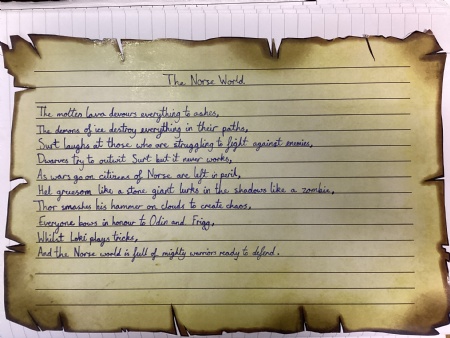 The Norse World
The molten lava devours everything to ashes,
The demons of ice destroy everything in their paths,
Surt laughs at those who are struggling to fight against enemies,
Dwarves try to outwit Surt but it never works,
As wars go on citizens of Norse are left in peril,
Hel gruesom like a stone giant lurks in the shadows like a zombie,
Thor smashes his hammer on clouds to create chaos,
Everyone bows in honour to Odin and Frigg,
Whilst Loki plays tricks,
And the Norse world is full of mighty warriors ready to defend.